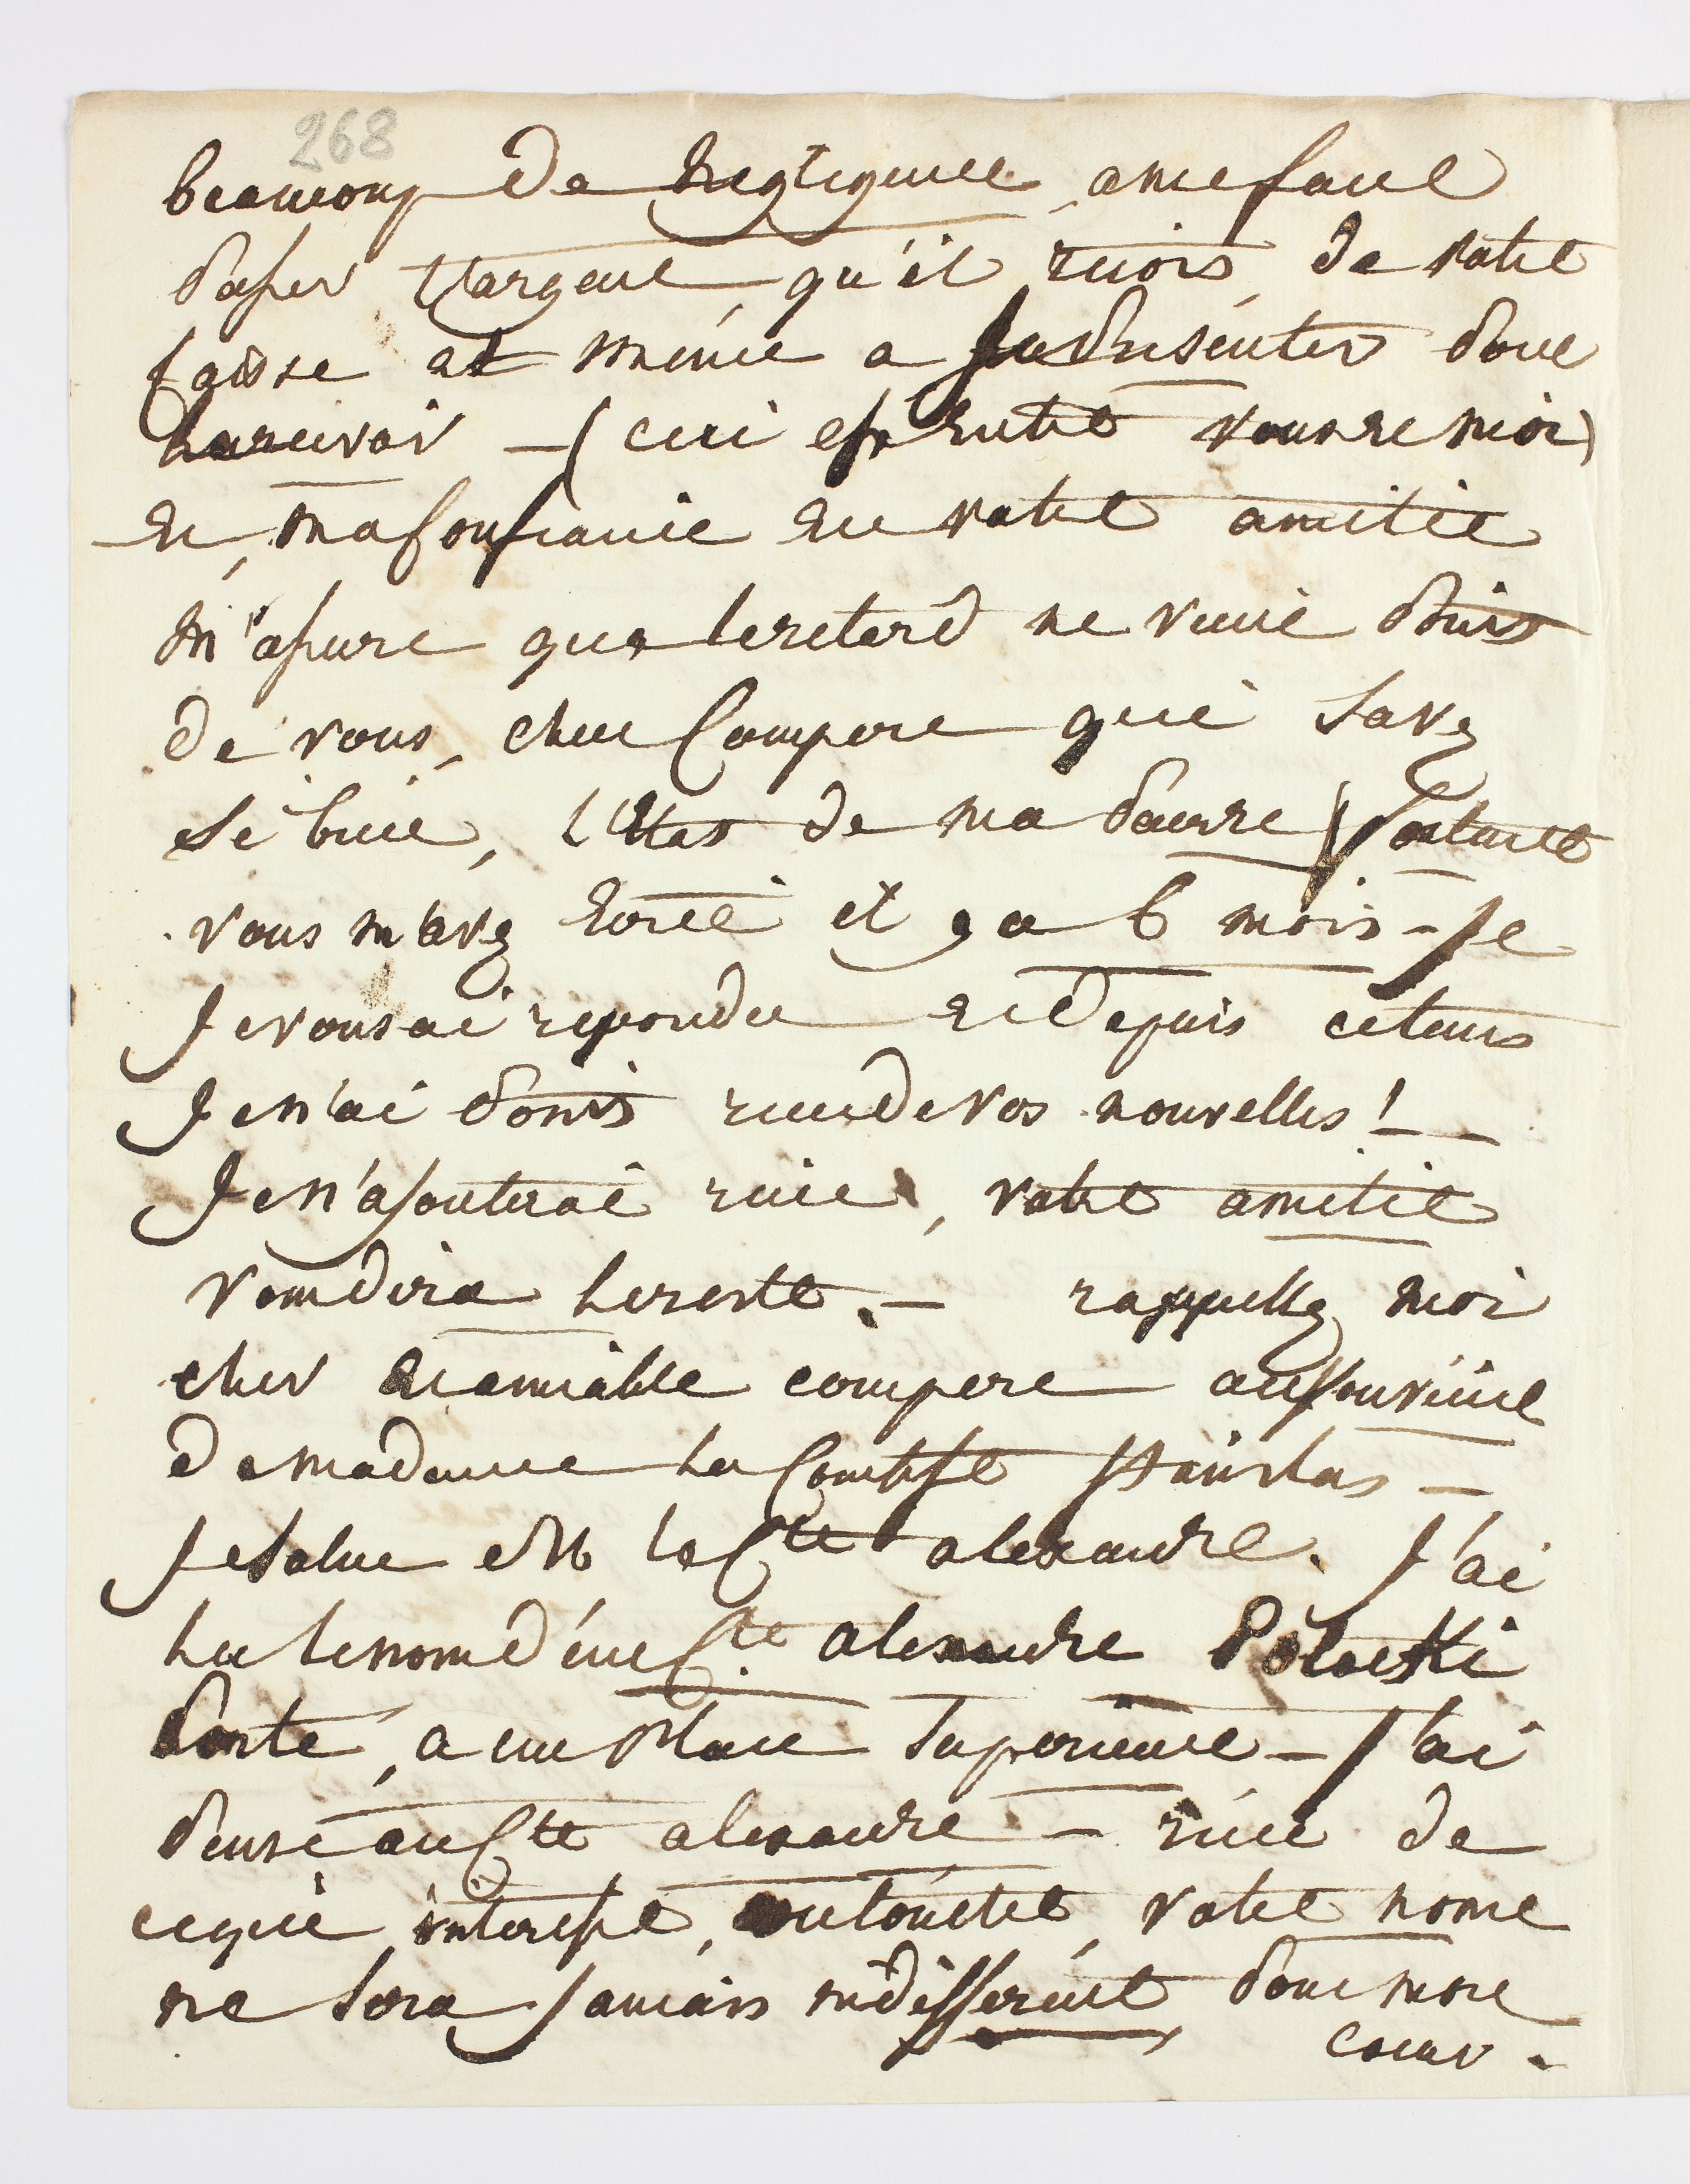 268
beaucoup de negligence a me faire
passer l'argent qu'il recois de votre
caisse et même a se presenter pour
le recevoir – (ceci est entre vous et moi)
et, ma confiance en votre amitié
m'assure que le retard ne vient point
de vous, cher Compere qui savez
si bien, l'Etat de ma bourse! pourtant
vous m'avez Ecrit il y a 6 mois – Je
Je vous ai repondu et depuis ce tems
Je n'ai point recu de vos nouvelles! –
Je n'ajouterai rien, votre amitié
vous dira le reste. – rappellez moi
cher et aimable compere au souvenir
de madame la Comtesse Stanislas –
Je salue Mr le Cte alexandre. J'ai
lu le nom d'un Cte. alexandre Potocki
porté, a une place superieure – J'ai
pensé au Cte alexandre – rien de
ce qui interesse, votre nome
ne sera Jamais indifferent pour mon
coeur.